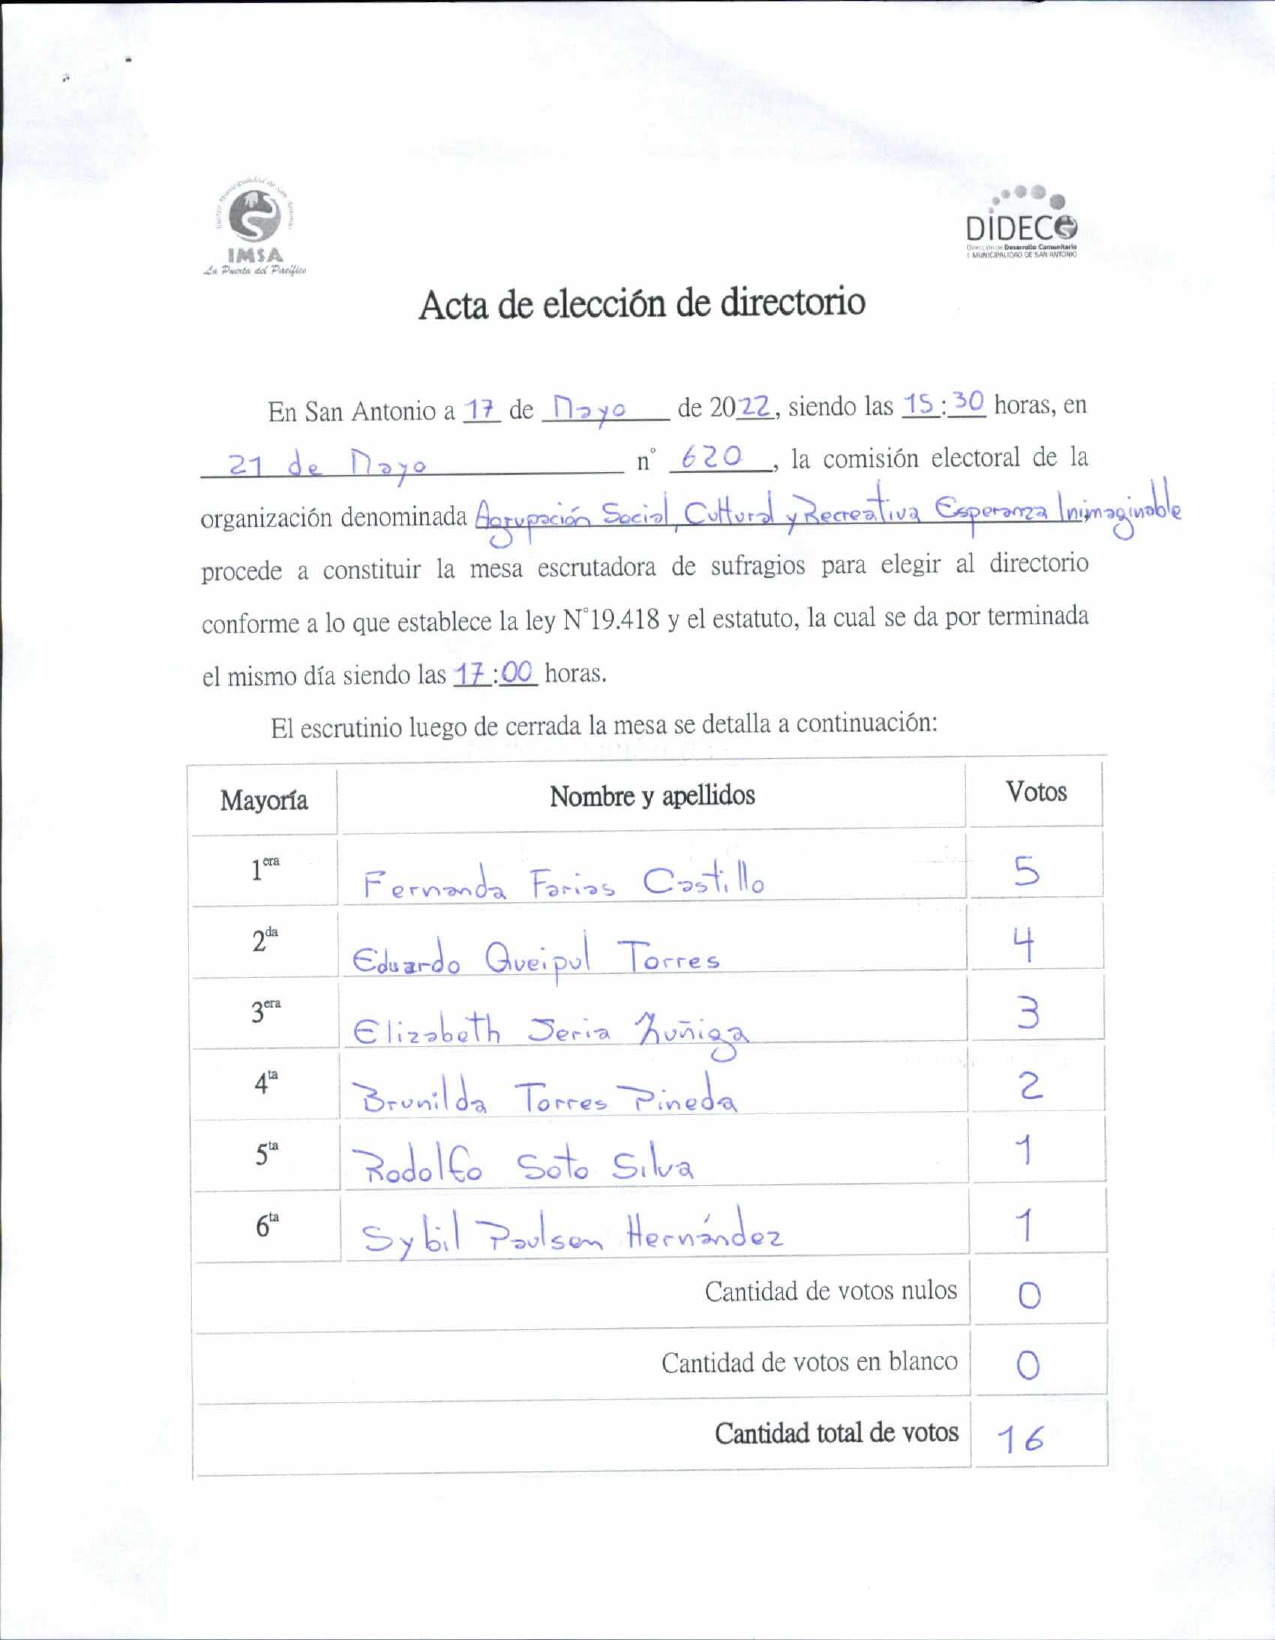 IMSA
La Puerta del Pacífico
DIDECO
Dirección de Desarrollo Comunitario
I. MUNICIPALIDAD DE SAN ANTONIO
Acta de elección de directorio
En San Antonio a 17 de Mayo de 2022, siendo las 15:30 horas, en
21 de Mayo n° 620, la comisión electoral de la
organización denominada Agrupación Social, Cultural y Recreativa Esperanza Inimaginable
procede a constituir la mesa escrutadora de sufragios para elegir al directorio
conforme a lo que establece la ley N°19.418 y el estatuto, la cual se da por terminada
el mismo día siendo las 17:00 horas.
El escrutinio luego de cerrada la mesa se detalla a continuación:
Mayoría Nombre y apellidos Votos
1era Fernanda Farias Castillo 5
2da Eduardo Queipul Torres 4
3era Elizabeth Jeria Zuñiga 3
4ta Brunilda Torres Pineda 2
5ta Rodolfo Soto Silva 1
6ta Sybil Paulsen Hernández 1
Cantidad de votos nulos 0
Cantidad de votos en blanco 0
Cantidad total de votos 16